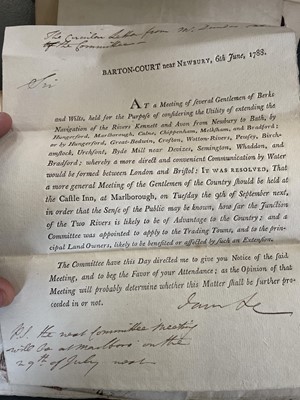 The Circular Letter from Mr.
of the Committee
Sir
BARTON-COURT near NEWBURY, 6th June, 1788.
AT a Meeting of several Gentlemen of Berks
and Wilts, held for the Purpose of considering the Utility of extending the
Navigation of the Rivers Kennett and Avon From Newbury to Bath, by
Hungerford, Marlborough, Calne, Chippenham, Melksham, and Bradford;
or by Hungerford, Great-Bedwin, Crofton, Watton-Rivers, Pewsey, Birch-
amstock, Urchfont, Hyde Mill near Devizes, Semington, Whaddon, and
Bradford; whereby a more direct and convenient Communication by Water
would be formed between London and Bristol; IT WAS RESOLVED, That
a more general Meeting of the Gentlemen of the Country should be held
at the Castle Inn, at Marlborough, on Tuesday the 9th September next,
in order that the Sense of the Public may be known, how far the Junction
of the Two Rivers is likely to be of Advantage to the Country; and a
Committee was appointed to apply to the Trading Towns, and to the prin-
cipal Land Owners, likely to be benefited or affected by such an Extension.
The Committee have this Day directed me to give you Notice of the said
Meeting, and to beg the Favor of your Attendance; as the Opinion of that
Meeting will probably determine whether this Matter shall be further pro-
ceeded in or not.
I am &c
P.S. the next Committee Meeting
will be at Marlbro' on the
29th of July next